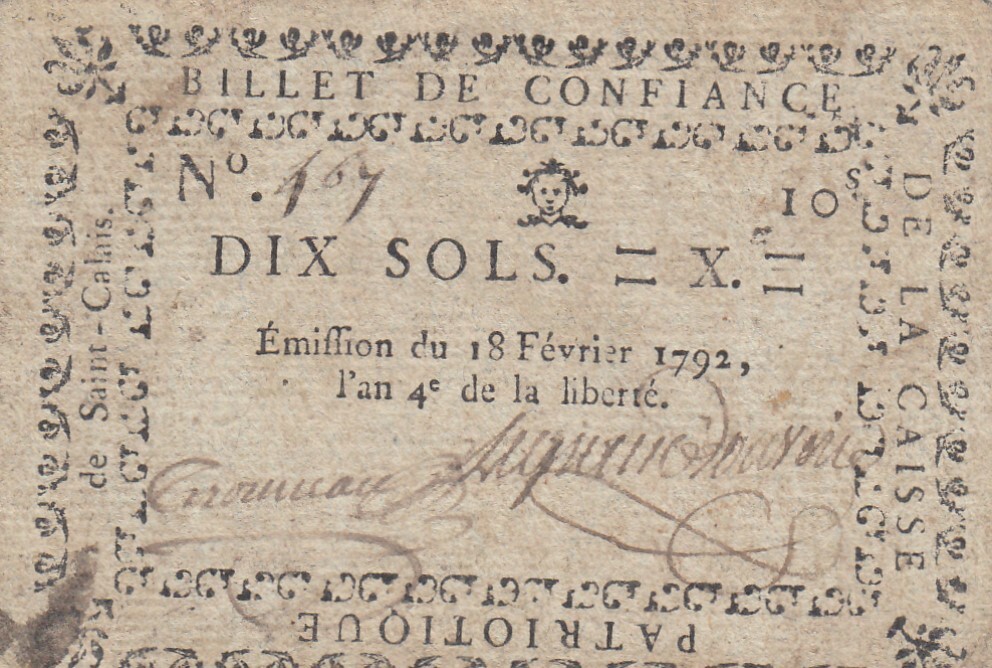 BILLET DE CONFIANCE
DE LA CAISSE
PATRIOTIQUE
de Saint-Calais.
Nº. 467
10 s
DIX SOLS. = X. =
Émiſſion du 18 Février 1792,
l'an 4e de la liberté.